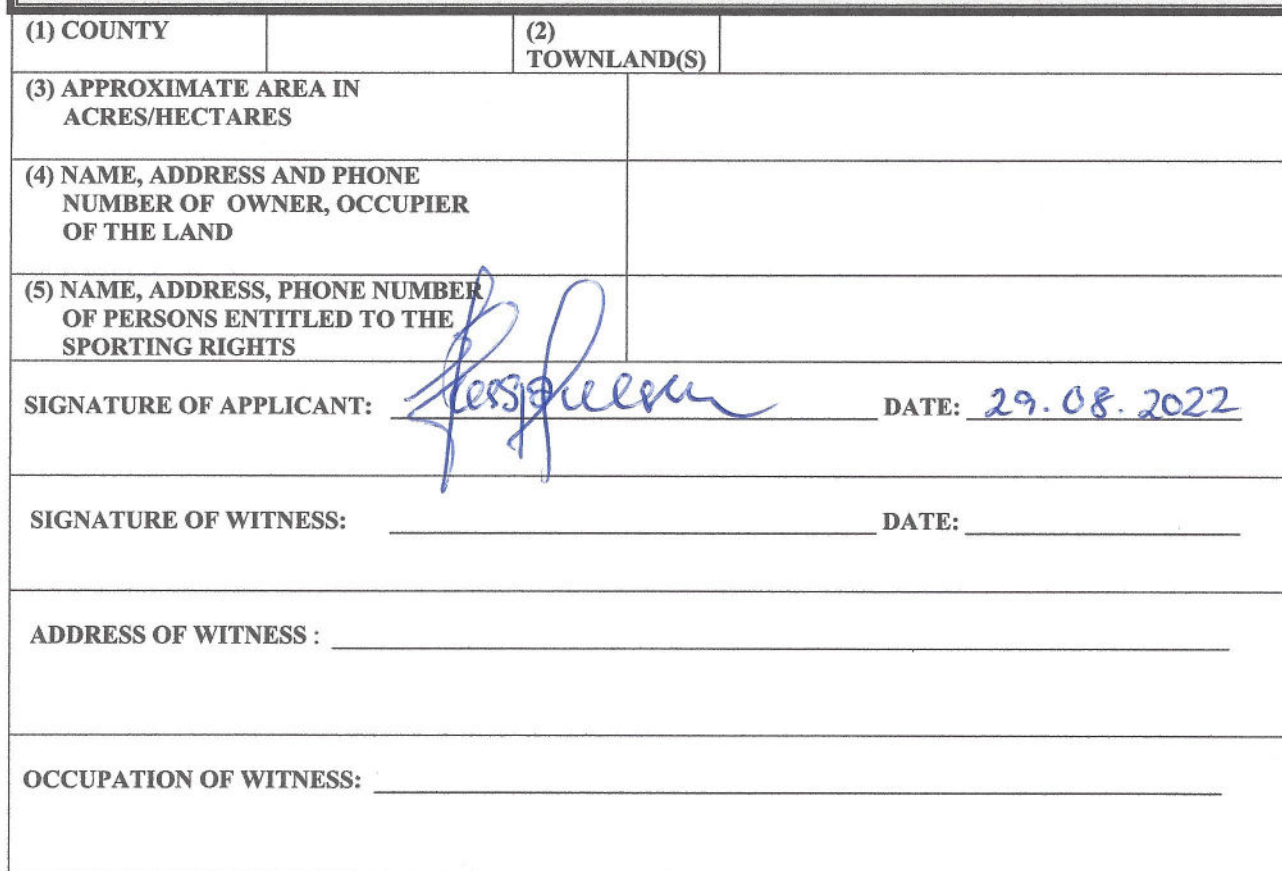 (1) COUNTY
(2)
TOWNLAND(S)
(3) APPROXIMATE AREA IN
ACRES/HECTARES
(4) NAME, ADDRESS AND PHONE
NUMBER OF OWNER, OCCUPIER
OF THE LAND
(5) NAME, ADDRESS, PHONE NUMBER
OF PERSONS ENTITLED TO THE
SPORTING RIGHTS
SIGNATURE OF APPLICANT: DATE: 29.08.2022
SIGNATURE OF WITNESS: DATE:
ADDRESS OF WITNESS :
OCCUPATION OF WITNESS: